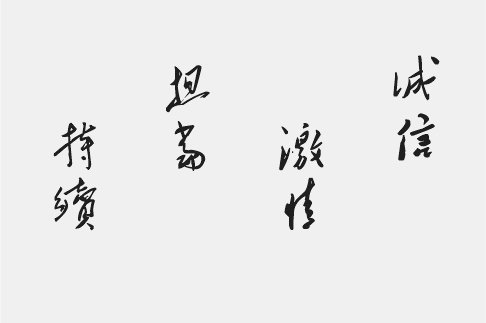 诚信
激情
担当
持續